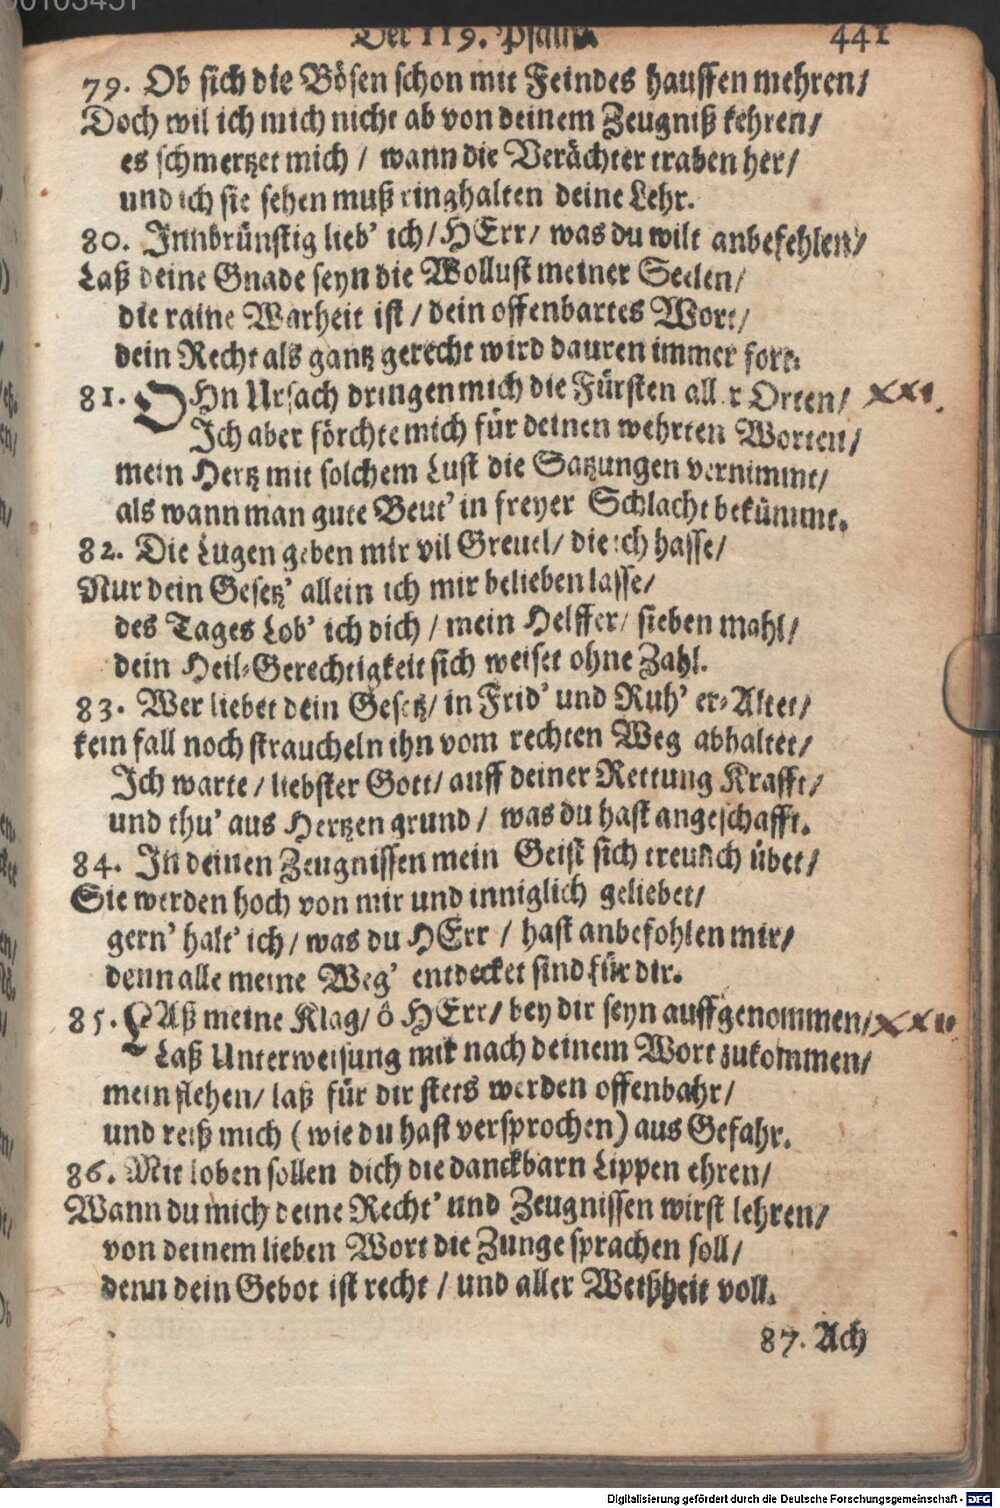 00103451
Der 119. Psalm. 441
79. Ob sich die Bösen schon mit Feindes hauffen mehren/
Doch wil ich mich nicht ab von deinem Zeugniß kehren/
es schmertzet mich / wann die Verächter traben her/
und ich sie sehen muß ringhalten deine Lehr.
80. Innbrünstig lieb' ich/ HErr/ was du wilt anbefehlen/
Laß deine Gnade seyn die Wollust meiner Seelen/
die raine Warheit ist / dein offenbartes Wort/
dein Recht als gantz gerecht wird dauren immer fort.
81. OHn Ursach dringen mich die Fürsten aller Orten/ XXI.
Ich aber förchte mich für deinen wehrten Worten/
mein Hertz mit solchem Lust die Satzungen vernimmt/
als wann man gute Beut' in freyer Schlacht bekümmt.
82. Die Lugen geben mir vil Greuel/ die ich hasse/
Nur dein Gesetz' allein ich mir belieben lasse/
des Tages Lob' ich dich / mein Helffer/ sieben mahl/
dein Heil-Gerechtigkeit sich weiset ohne Zahl.
83. Wer liebet dein Gesetz/ in Frid' und Ruh' er-Altet/
kein fall noch straucheln ihn vom rechten Weg abhaltet/
Ich warte / liebster Gott/ auff deiner Rettung Krafft/
und thu' aus Hertzen grund / was du hast angeschafft.
84. In deinen Zeugnissen mein Geist sich treulich übet/
Sie werden hoch von mir und inniglich geliebet/
gern' halt' ich/ was du HErr / hast anbefohlen mir/
denn alle meine Weg' entdecket sind für dir.
85. LAß meine Klag/ ô HErr/ bey dir seyn auffgenommen/ XXII
Laß Unterweisung mir nach deinem Wort zukommen/
mein flehen/ laß für dir stets werden offenbahr/
und reiß mich (wie du hast versprochen) aus Gefahr.
86. Mit loben sollen dich die danckbarn Lippen ehren/
Wann du mich deine Recht' und Zeugnissen wirst lehren/
von deinem lieben Wort die Zunge sprachen soll/
denn dein Gebot ist recht / und aller Weißheit voll.
87. Ach
Digitalisierung gefördert durch die Deutsche Forschungsgemeinschaft - DFG